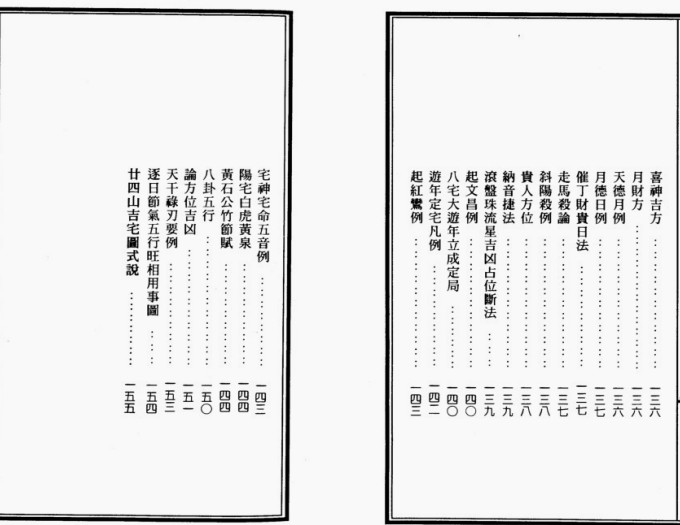 喜神吉方 …… 一三六
月財方 …… 一三六
天德月例 …… 一三六
月德日例 …… 一三七
催丁財貴日法 …… 一三七
走馬殺論 …… 一三七
斜陽殺例 …… 一三八
貴人方位 …… 一三八
納音捷法 …… 一三九
滾盤珠流星吉凶占位斷法 …… 一三九
起文昌例 …… 一四〇
八宅大遊年立成定局 …… 一四〇
遊年定宅凡例 …… 一四二
起紅鸞例 …… 一四三
宅神宅命五音例 …… 一四三
陽宅白虎黃泉 …… 一四四
黃石公竹節賦 …… 一四四
八卦五行 …… 一五〇
論方位吉凶 …… 一五一
天干祿刃要例 …… 一五三
逐日節氣五行旺相用事圖 …… 一五四
廿四山吉宅圖式說 …… 一五五